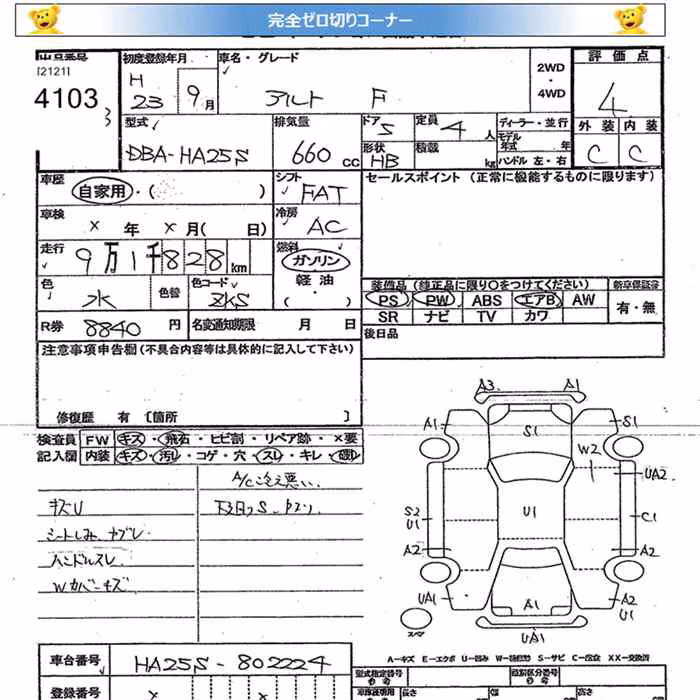 完全ゼロ切りコーナー
出品番号 初度登録年月 車名・グレード 2WD・4WD 評価点
[2121]
4103 H 23 9月 アルト F 4
型式 排気量 ドア 5 定員 4人 ディーラー・並行 外装 内装
DBA-HA25S 660cc 形状 HB 積載 kg モデル年式 年 C C
ハンドル 左・右
車歴 自家用・( ) シフト FAT セールスポイント (正常に機能するものに限ります)
車検 × 年 × 月( 日) 冷房 AC
走行 9万1千828km 燃料 ガソリン
軽油
・( )
色 水 色替 色コード ZKS 装備品 (純正品に限り○をつけてください) 新車保証書
PS PW ABS エアB AW 有・無
SR ナビ TV カワ
R券 8840円 名変通知期限 月 日 後日品
注意事項申告欄 (不具合内容等は具体的に記入して下さい)
修復歴 有 [箇所 ]
検査員 FW キズ・飛石・ヒビ割・リペア跡・×要
記入欄 内装 キズ・汚レ・コゲ・穴・スレ・キレ・
A/C冷え悪い
キズU
シートしみ
ハンドルスレ
Wカバーキズ
A3 A1
A1 S1 S1
W2 UA2
S2 U1 U1 C1
A2 A2
UA1 A1 A2 U1
スペア UA1
A-キズ E-エクボ U-凹み S-サビ XX-交換済
車台番号 HA25S-802224
型式指定番号 類別区分番号
登録番号 × × 長さ 幅 高さ